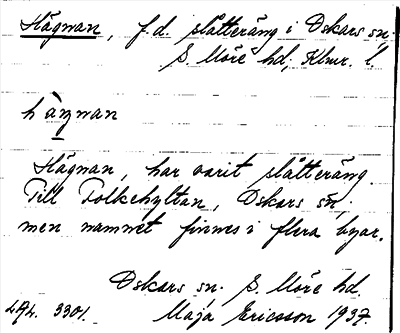 Hägnan, f.d. slåtteräng i Oskars sn.
S. Möre hd; Klmr. l.
hàŋnan
Hägnan, har varit slåtteräng.
Till Folkehyltan, Oskars sn,
men namnet finnes i flera byar.
Oskars sn. S. Möre hd.
Maja Ericsson 1937.
3301.